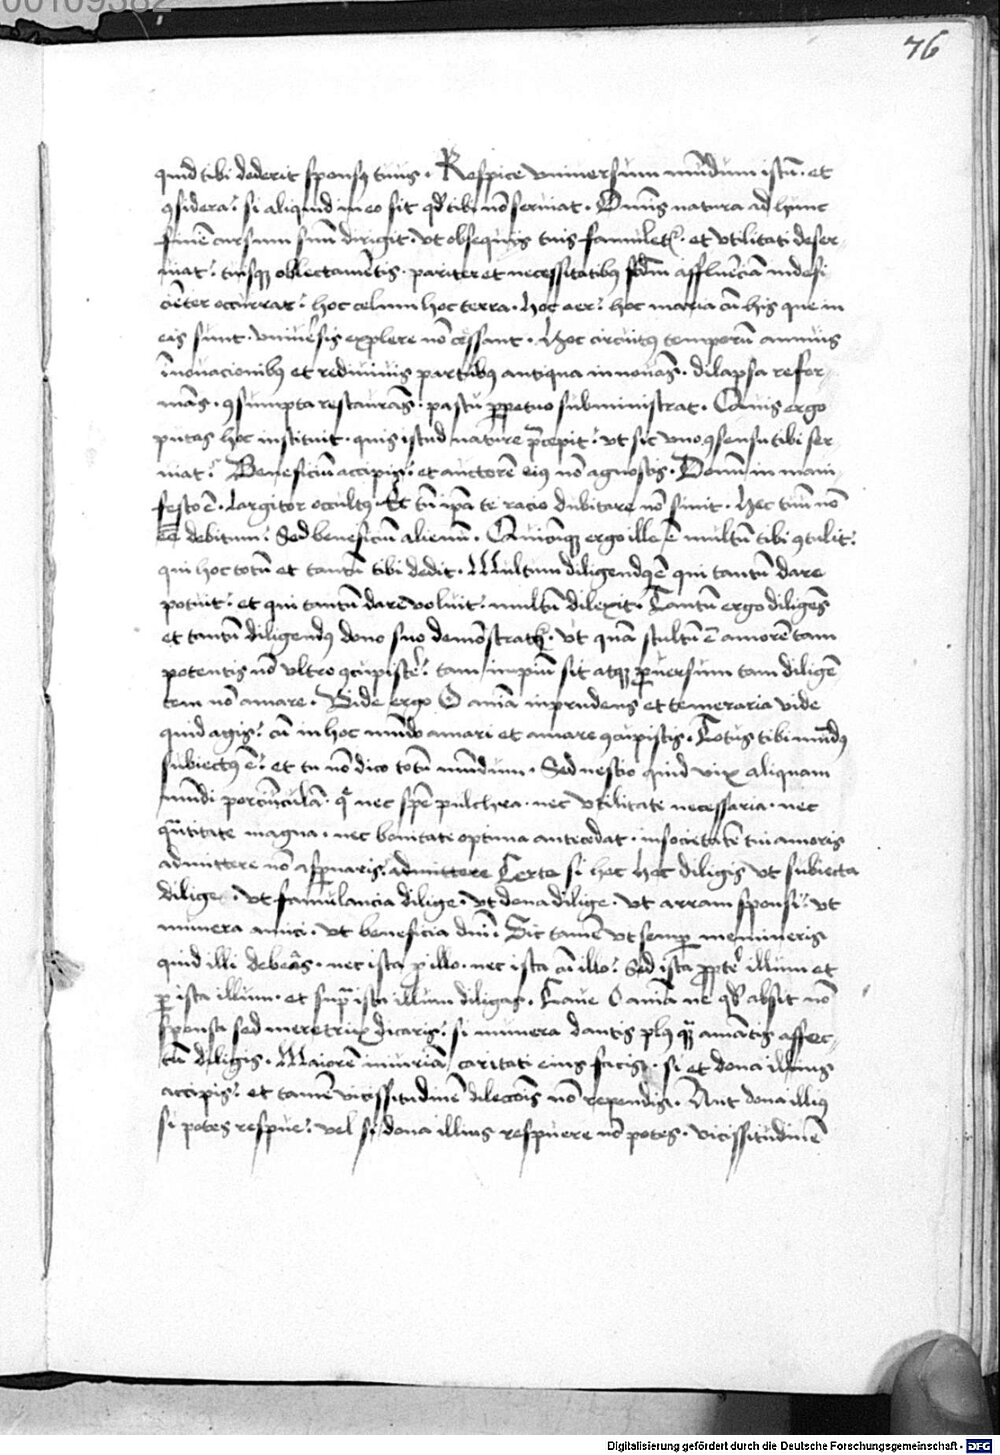 00109382
76
quid tibi dederit sponsꝰ tuus · Respice vniuersum mūdum istū · et
ꝯsidera · si aliquid in eo sit qď tibi nō seruiat · Omnis natura ad hunc
finē cursum suū dirigit · vt obsequiis tuis famuletꝰ · et vtilitati deser-
uiat · tuisqꝫ oblectamētis · pariter et necessitatibꝰ scďm affluēciā indefi
ciēter occurrat · hoc celum hoc terra · hoc aer · hoc maria cū his que in
eis sunt · vniuėsis explere nō cessant · Hoc circuitꝰ temporū annuis
īnouacionibꝰ et rediuiuis partubꝰ antiqua innouās · dilapsa refor-
mās · ꝯsumpta restaurās · pastu ꝑpetuo subministrat · Quis ergo
putas hoc instituit · quis istud nature p̄cepit · vt sic vno ꝯsensu tibi ser
uiat · Beneficiū accipis · et auctorē eiꝰ nō agnoscis · Donū in mani-
festo ē · largitor occultꝰ · Et tn̄ ip̄a te racio dubitare nō sinit · Hec tuū nō
eē debitum · Sed beneficiū alienū · Quicūqꝫ ergo ille ē multū tibi ꝯtulit ·
qui hoc totū et tantū tibi dedit · Multum diligendꝰ ē qui tantū dare
potuit · et qui tantū dare voluit · multū dilexit · Tantū ergo diligēs
et tantū diligendꝰ dono suo demōstratꝰ · Vt quā stultū ē amorē tam
potentis nō vltro ꝯcupiscė · tam impiū sit atqꝫ ꝑuersum tam diligē
tem nō amare · Vide ergo O aīa inprudens et temeraria vide
quid agis · cū in hoc mūdo amari et amare ꝯcupiscis · Totus tibi mūdꝰ
subiectꝰ ē · et tu nō dico totū mūdum · Sed nescio quid vix aliquam
mūdi porciūculā · q̄ nec spē pulchra · nec vtilitate necessaria · nec
qᵃntitate magna · nec bonitate optima antecedat · in societatē tui amoris
admittere nō asꝑnaris · admittere Certe si hec hec diligis vt subiecta
dilige · vt famulancia dilige · vt dona dilige · vt arram sponsi · vt
munera amici · vt beneficia dn̄i · Sic tamē vt semꝑ memineris
quid illi debeās · nec ista ꝓ illo · nec ista cū illo · Sed ista ꝓptė illum et
ꝑ ista illum · et supᵃ ista illum diligas · Caue O aīa ne qď absit nō
sponsa sed meretrix dicaris · si munera dantis plꝰ qᵃ̄ amātis affec-
tū diligis · Maiorē iniuriā caritati eius facis · si et dona illius
accipis · et tamē vicissitudinē dilecc̄ōis nō rependis · Aut dona illiꝰ
si potes respue · vel si dona illius respuere nō potes · vicissitudinē
Digitalisierung gefördert durch die Deutsche Forschungsgemeinschaft - DFG